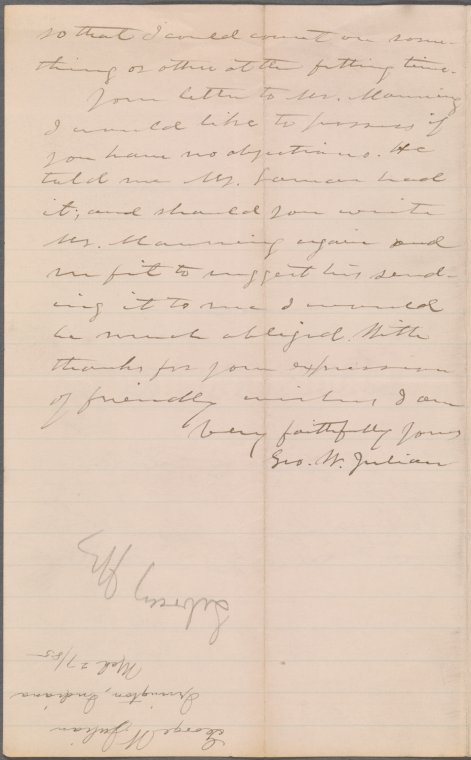 so that I could count on some-
thing or other at the fitting time.
Your letter to Mr. Manning
I would like to possess if
you have no objections. He
told me Mr. Lamar had
it, and should you write
Mr. Manning again and
see fit to suggest his send-
ing it to me I would
be much obliged. With
thanks for your expression
of friendly wishes, I am
Very faithfully yours
Geo. W. Julian
George W. Julian
Irvington, Indiana
Mch 27/85